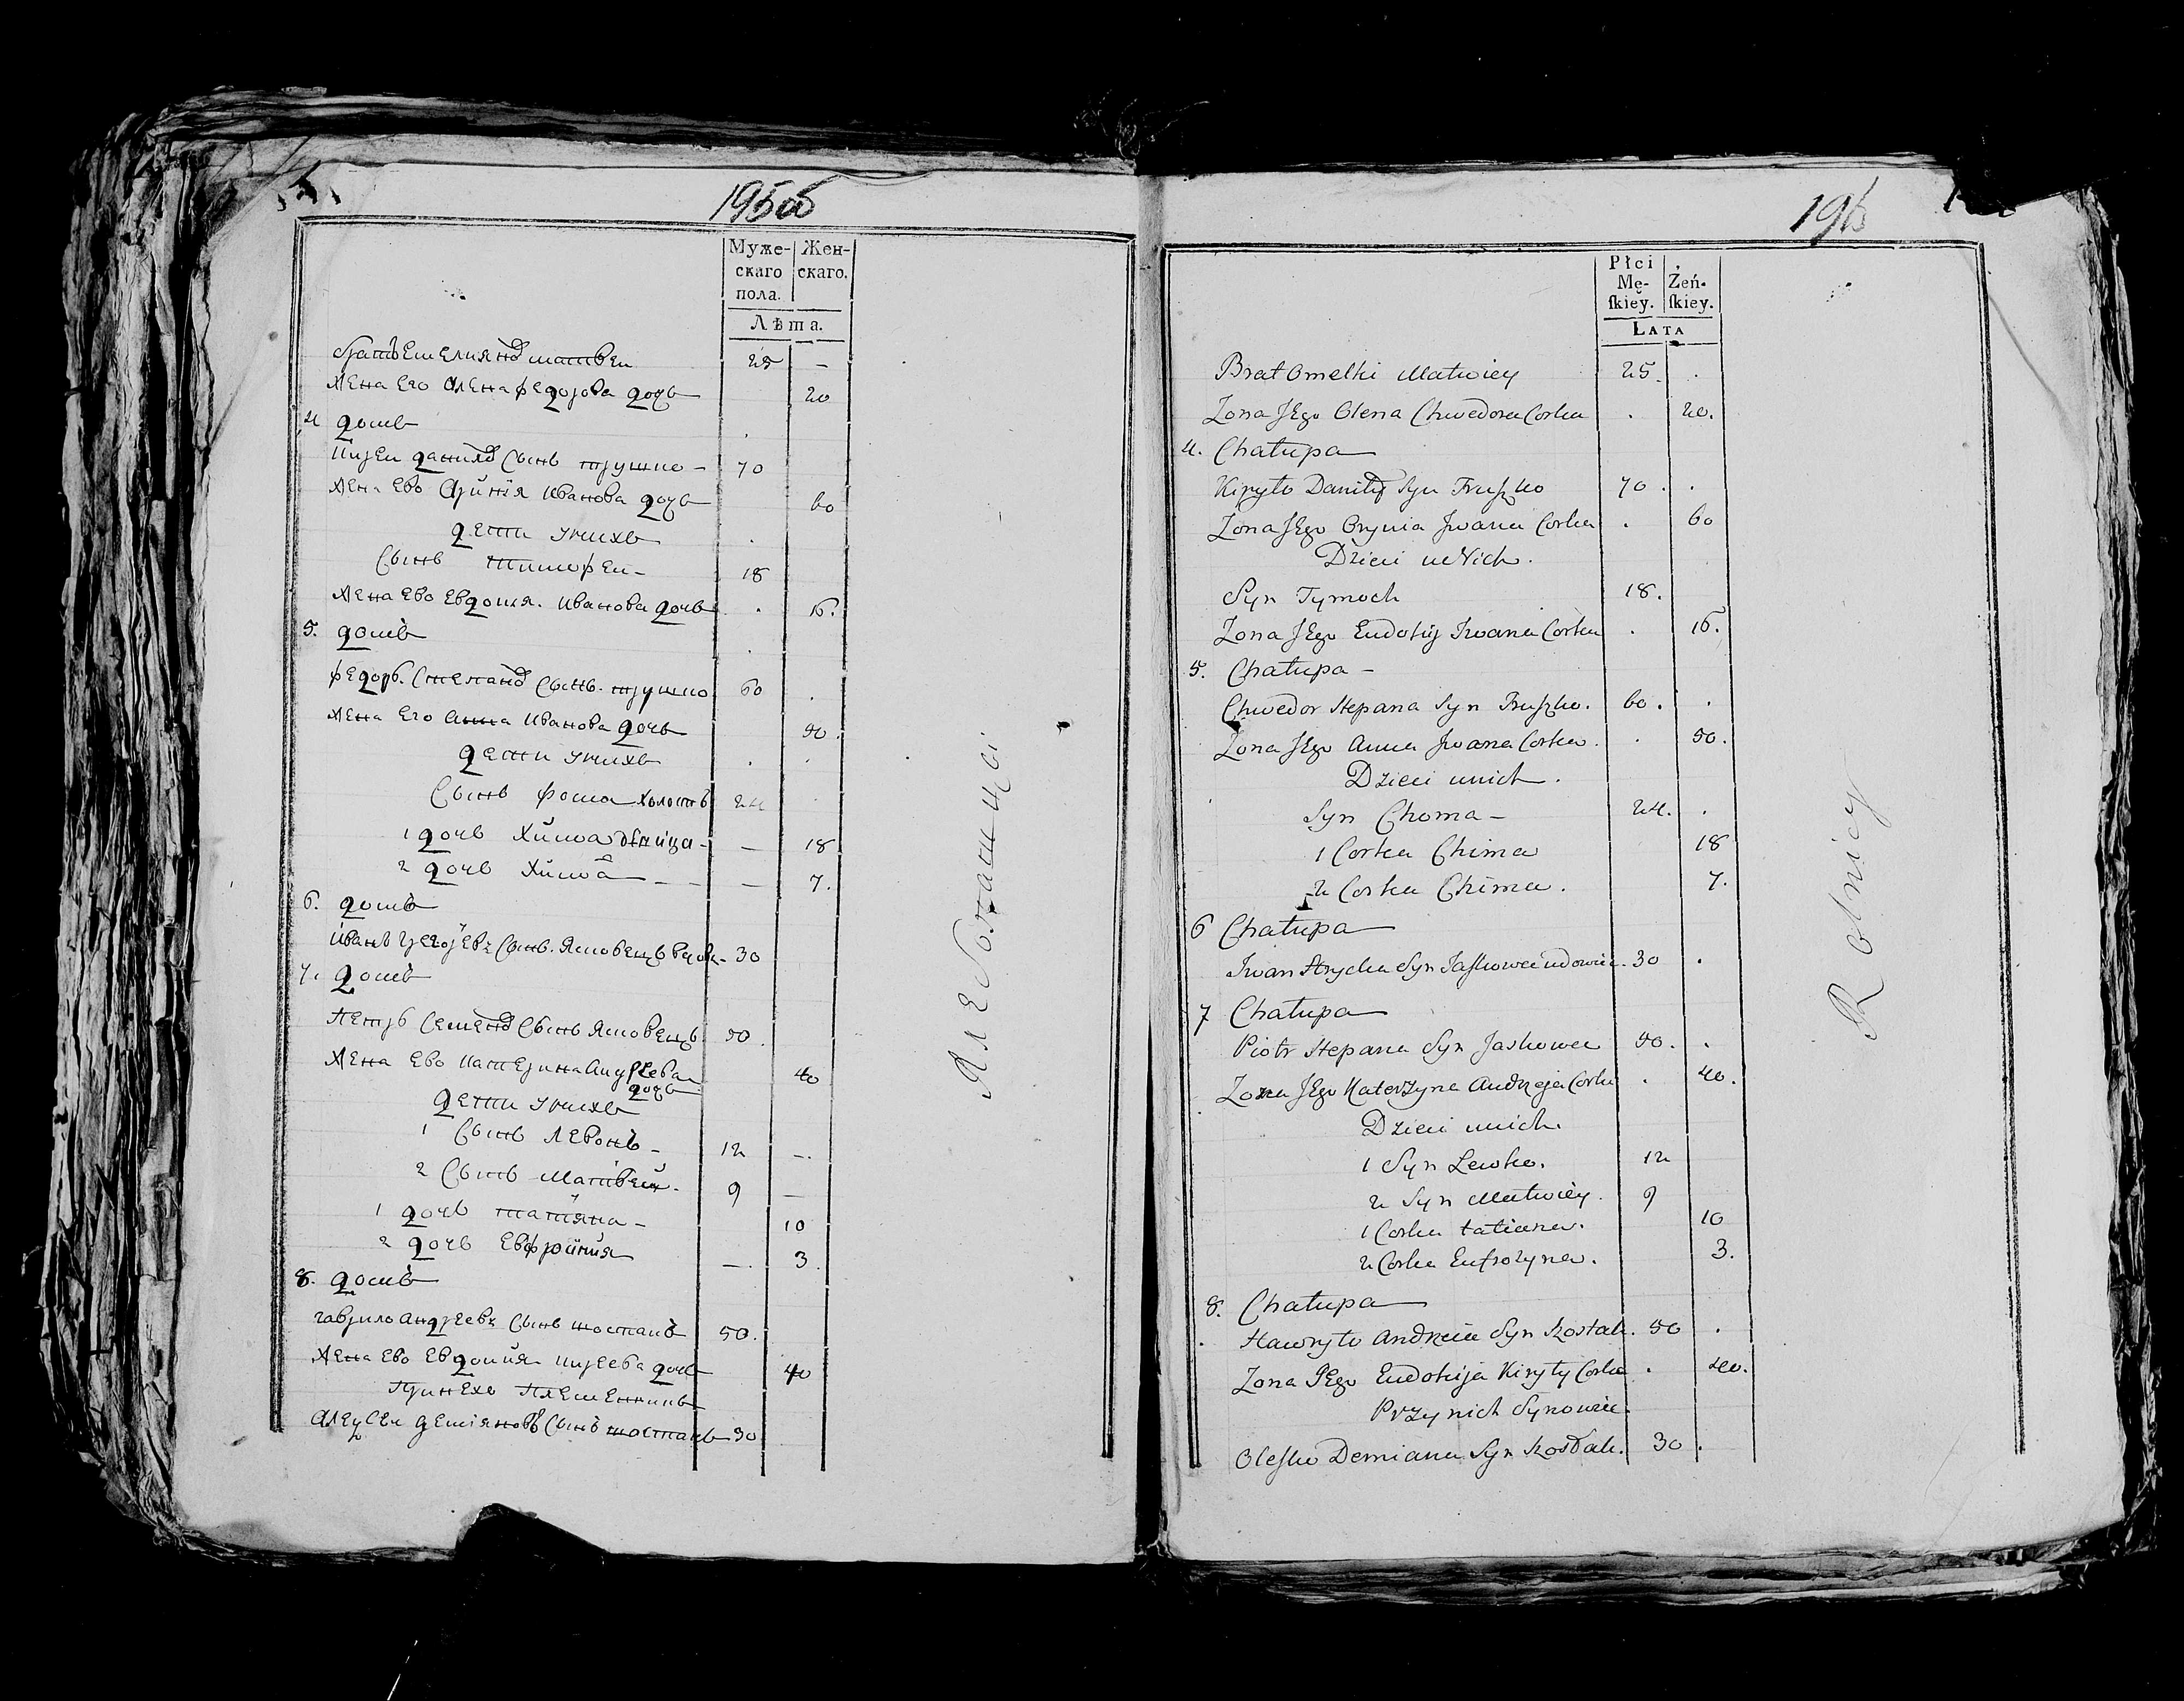 195об
Муже-
скаго
пола.
Жен-
скаго.
Лѣта.
братъ Емелияновъ матвеи 25 –
жена Его Олена федорова дочь 20
4 домъ
Кирѣи данилов Сынъ трушко – 70
жена Ево Оринiя Иванова дочь 60
дети у нихъ
Сынъ тимофеи – 18
жена Ево Евдокия. Иванова дочь 16.
5. домъ
федоръ. Степанов Сынъ. трушко 60
жена Его анна Иванова дочь 50.
дети у нихъ
Сынъ фома холостъ 24
1 дочь Химa девица – – 18
2 дочь Химa – – 7.
6. домъ
Иванъ Сынъ. Ясковецъ вдовъ – 30
7. домъ
петръ Семенов Сынъ Ясковецъ 50.
жена Ево катерина андрѣева дочь 40
дети у нихъ
1 Сынъ Левонъ – 12 –
2 Сынъ Матвей. 9 –
1 дочь татiяна – 10
2 дочь Евфросиния – 3.
8. домъ
гаврило андрѣевъ Сынъ шостакъ 50.
жена Ево Евдокия кирѣева дочь 40
при нехъ племенникъ
Алеѯеи демiяновъ Сынъ шостакъ 30
Хлебопашцы
196
Płci
Mę-
ſkiey.
Żeń-
ſkiey.
Lata
Brat Omelki Matwiey 25.
Zona Jego Olena Chwedora Corka 20.
4. Chałupa
Kiryło Daniły Syn Truszko 70.
Zona Jego Orynia Jwana Corka 60
Dzieci u Nich.
Syn Tymoch 18.
Zona Jego Eudokij Jwana Corka 16.
5. Chałupa –
Chwedor Stepana Syn Truszko. 60.
Zona Jego Anna Jwana Corka. 50.
Dzieci u nich.
Syn Choma – 24.
1 Corka Chima 18
2 Corka Chima. 7.
6 Chałupa
Jwan Hrycka Syn Jaskowec udowiec. 30
7 Chałupa
Piotr Stepana Syn Jaskowec 50.
Zona Jego Katerzyna Andrzeja Corka 40.
Dzieci u nich.
1 Syn Lewko. 12
2 Syn Matwiey. 9
1 Corka tatiana. 10
2 Corka Eufrozyna. 3.
8. Chałupa
Hawryło Andrzeia Syn Szostak. 50
Zona Jego Eudokija Kiryły Corka 40.
Przy nich Synowiec.
Olesko Demiana Syn Szostak. 30.
Rolnicy